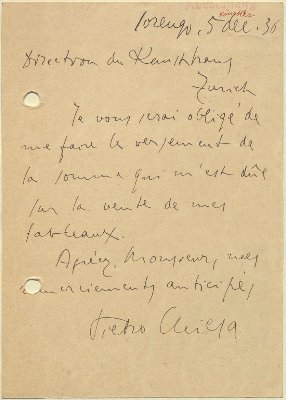 Sorengo, 5 déc. 36
Direction du Kunsthaus
Zurich
Je vous serai obligé de
me faire le versement de
la somme qui m'est dûe
sur la vente de mes
tableaux.
Agréez, Monsieur, mes
remerciements anticipés,
Pietro Chiesa